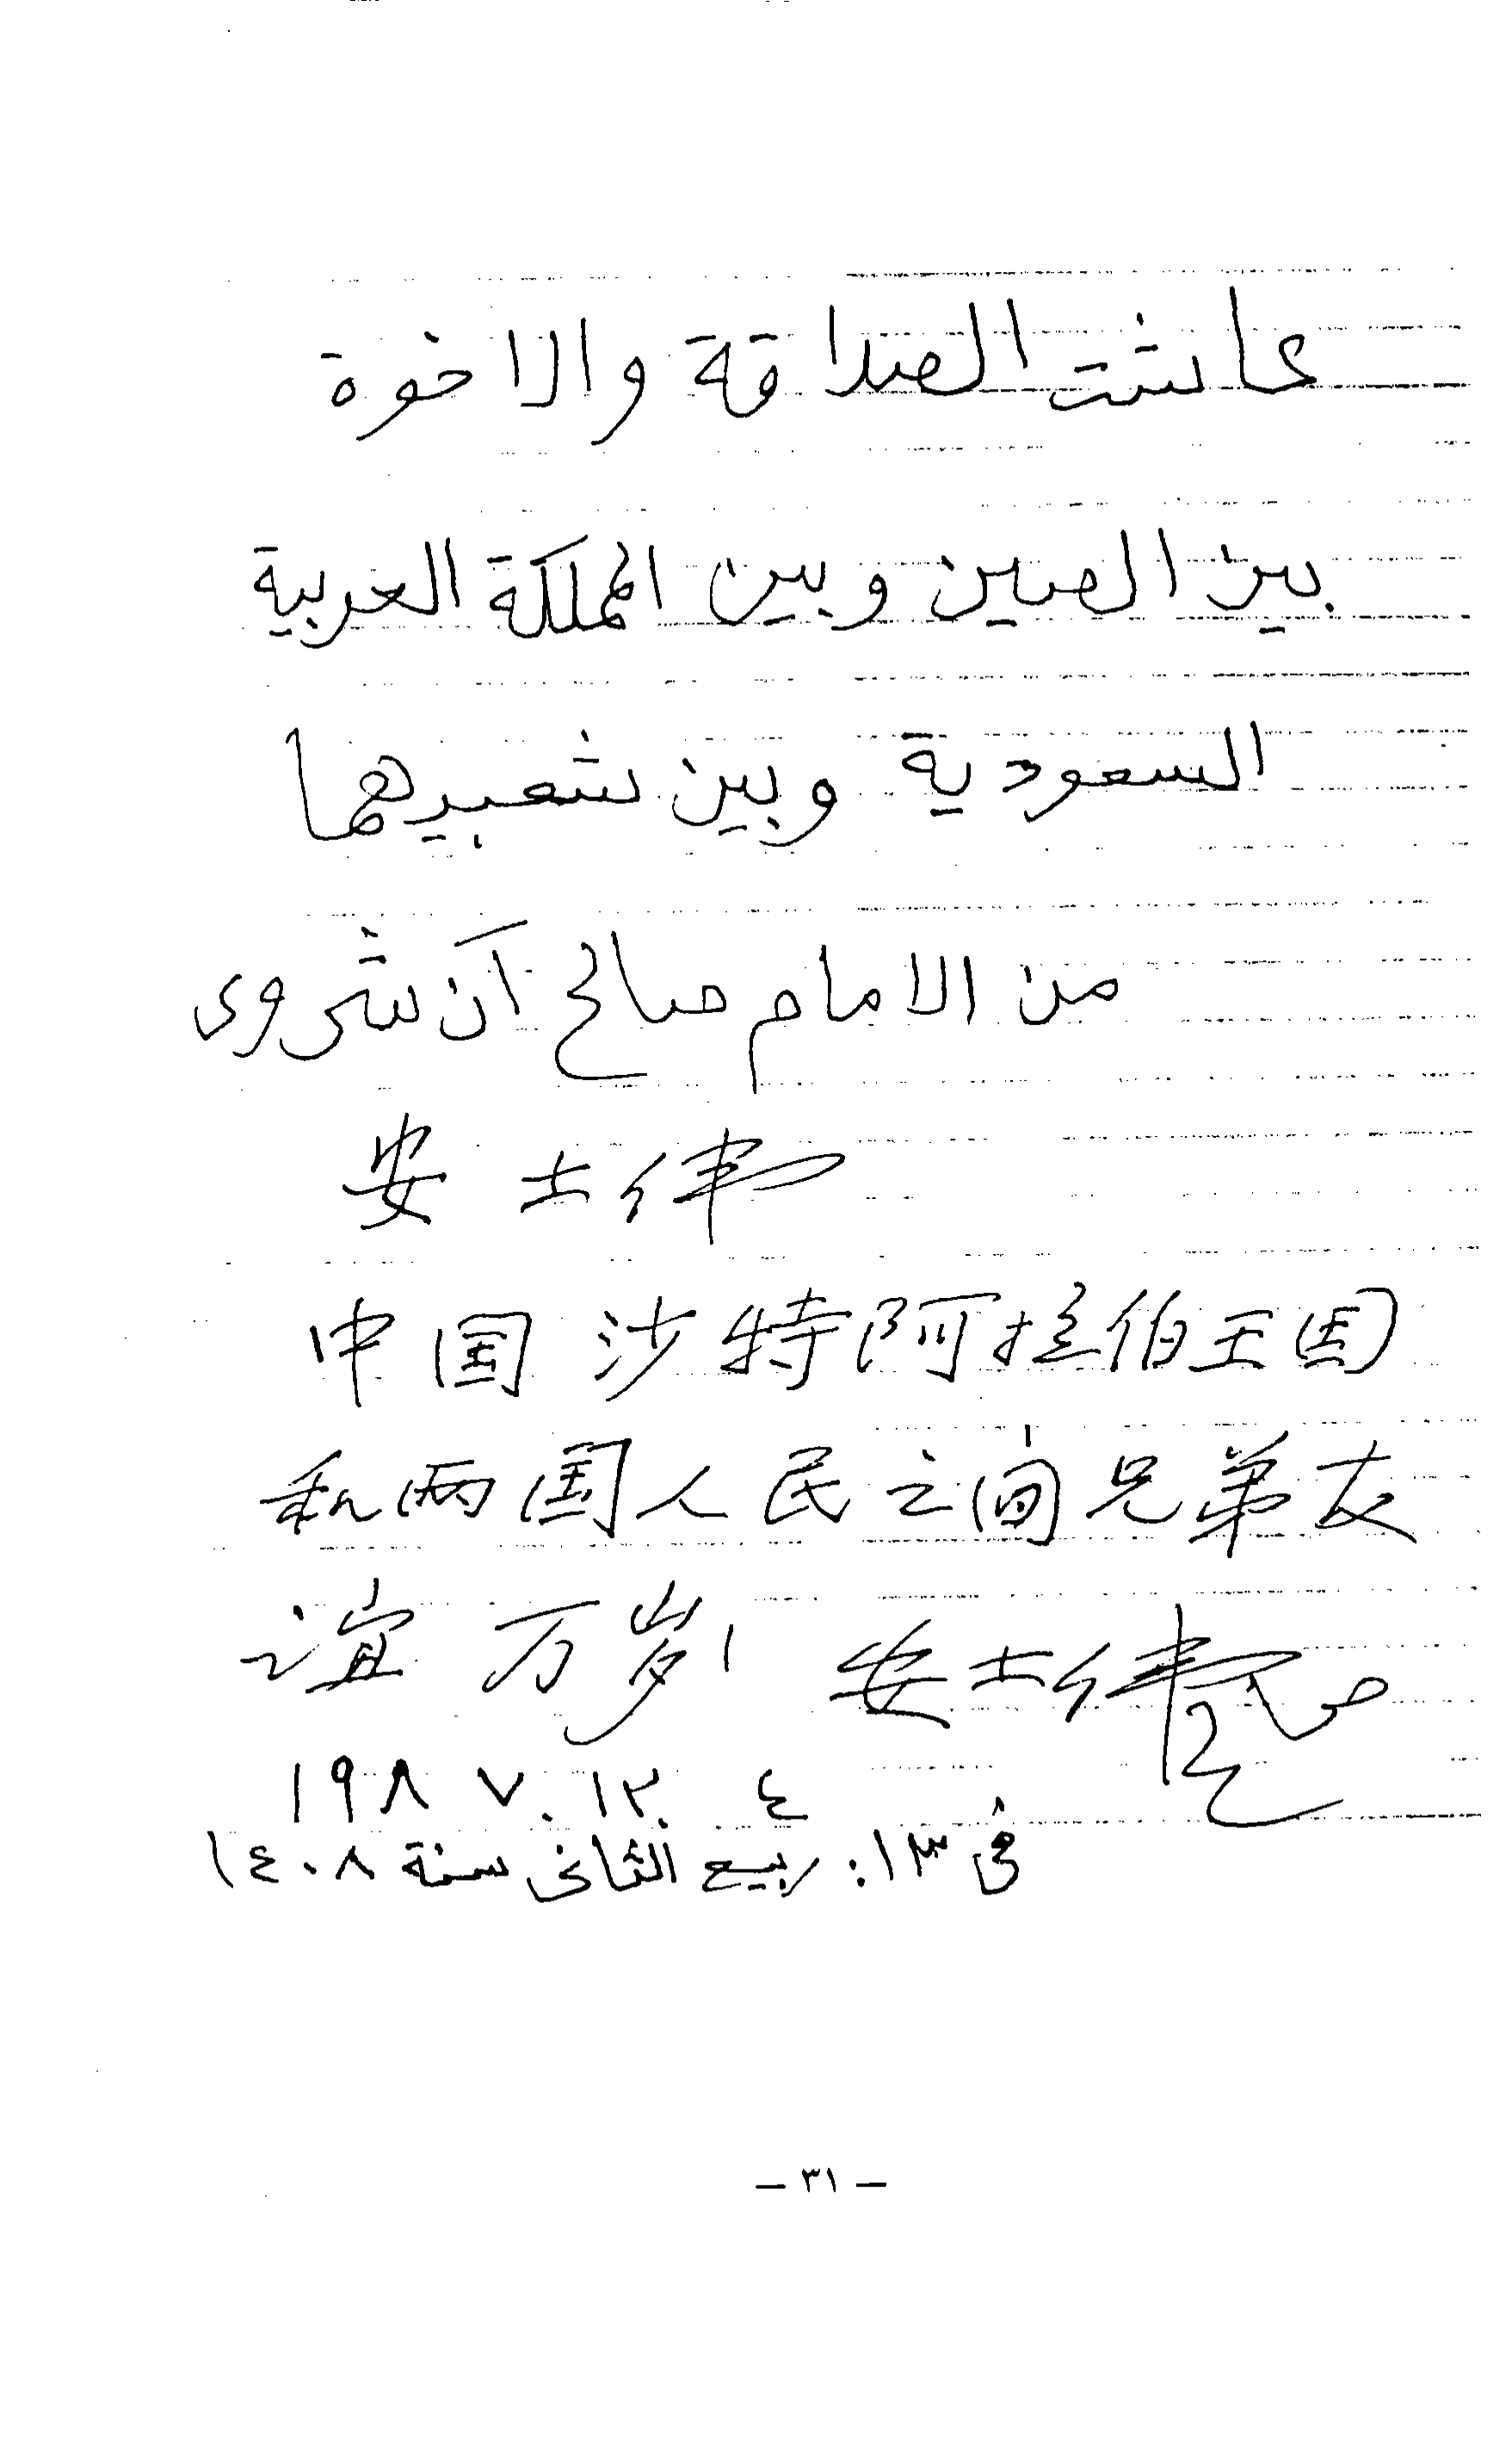 عاشت الصداقة والاخوة
بين الصين وبين المملكة العربية
السعودية وبين شعبيها
من الامام صالح آن شروى
安士伟
中国沙特阿拉伯王国
和两国人民之间兄弟友
谊万岁! 安士伟 صالح
١٩٨٧.١٢.٤
فى ١٣: ربيع الثانى سنة ١٤٠٨
— ٣١ —